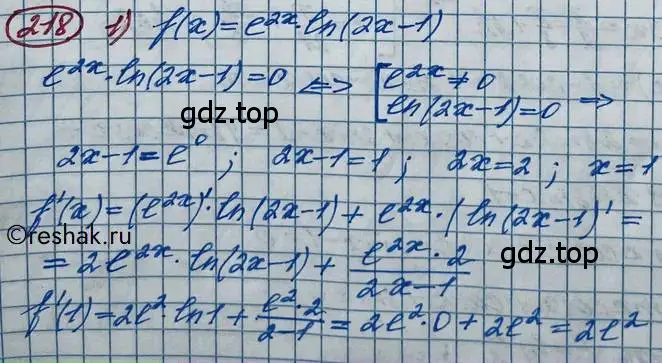 218 1) f(x)=e^{2x}·ln(2x-1)
e^{2x}·ln(2x-1)=0 <=> [e^{2x}≠0
ln(2x-1)=0 =>
gdz.top gdz.top
2x-1=e^0; 2x-1=1; 2x=2; x=1
f'(x)=(e^{2x})'·ln(2x-1)+e^{2x}·(ln(2x-1)'=
©reshak.ru
=2e^{2x}·ln(2x-1)+\frac{e^{2x}·2}{2x-1}
gdz.top gdz.top
f'(1)=2e^2·ln1+\frac{e^2·2}{2-1}=2e^2·0+2e^2=2e^2